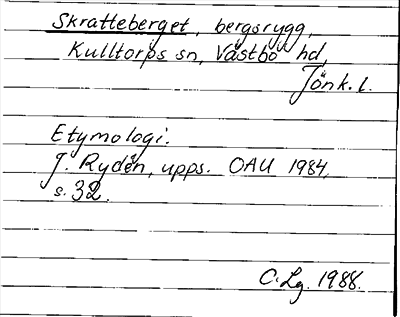 Skratteberget, bergsrygg,
Kulltorps sn, Västbo hd,
Jönk. l.
Etymologi.
J. Rydén, upps. OAU 1984,
s. 32.
C. Lg. 1988.